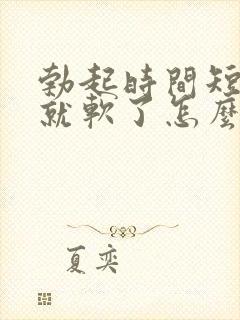 勃起時間短
就軟了怎麼
夏奕